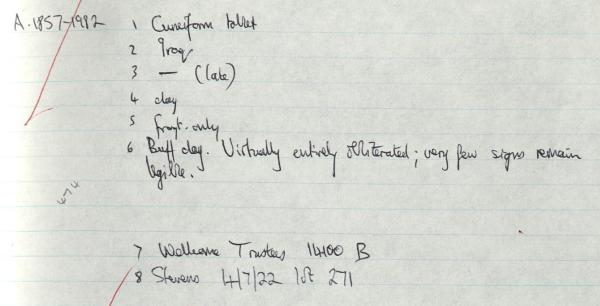 A.1857-1982 1 Cuneiform tablet
2 Iraq
3 — (late)
4 clay
5 front only
6 Buff clay. Virtually entirely obliterated; very few signs remain
legible.
474
7 Wellcome Trustees 14100 B
8 Stevens 4/7/22 lot 271